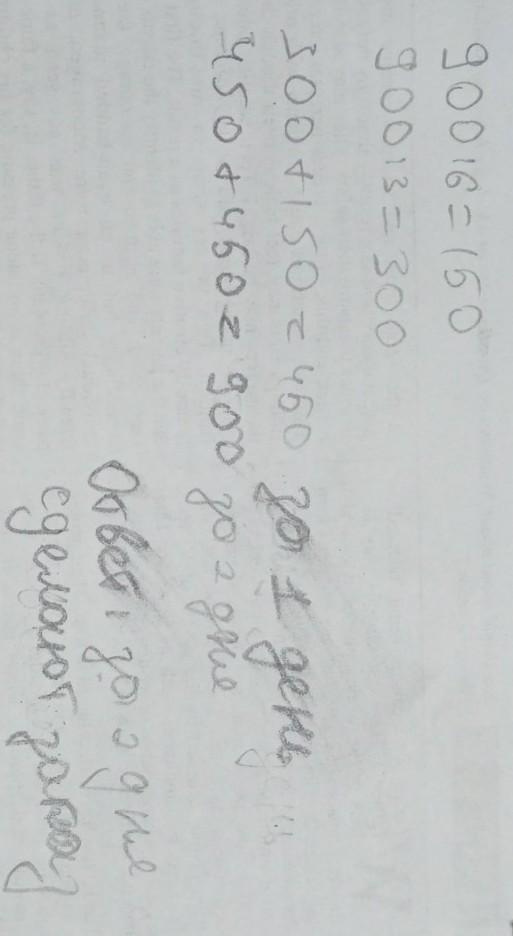 900:6=150
900:3=300
300+150=450 за 1 день
450+450=900 за 2 дня
Ответ: за 2 дня
сделают заказ